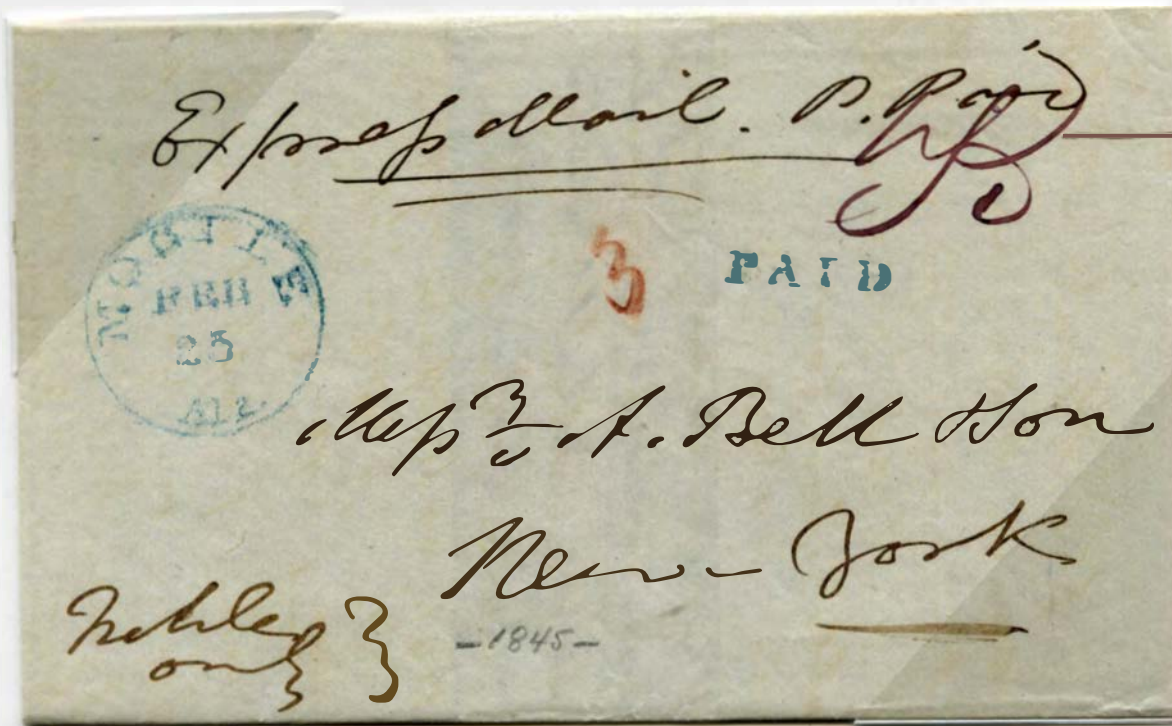 Express Mail. P. Paid
MOBILE
FEB
25
Ala.
3
PAID
Messrs A. Bell & Son
New York
-1845-